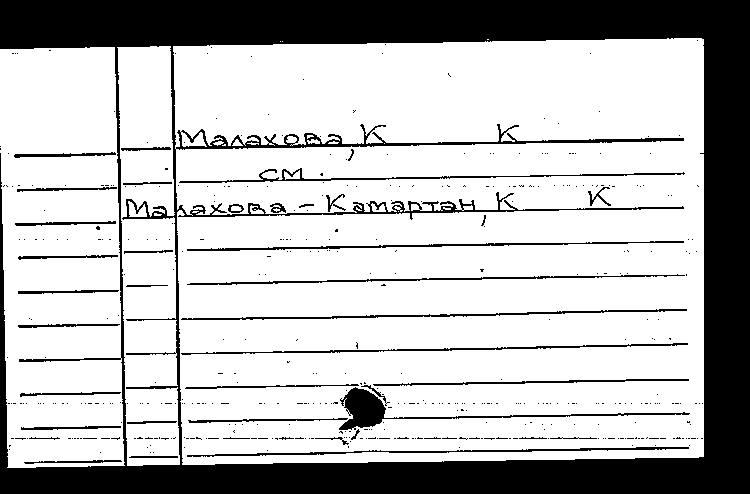 Малахова, К К
см.
Малахова - Камартан, К К